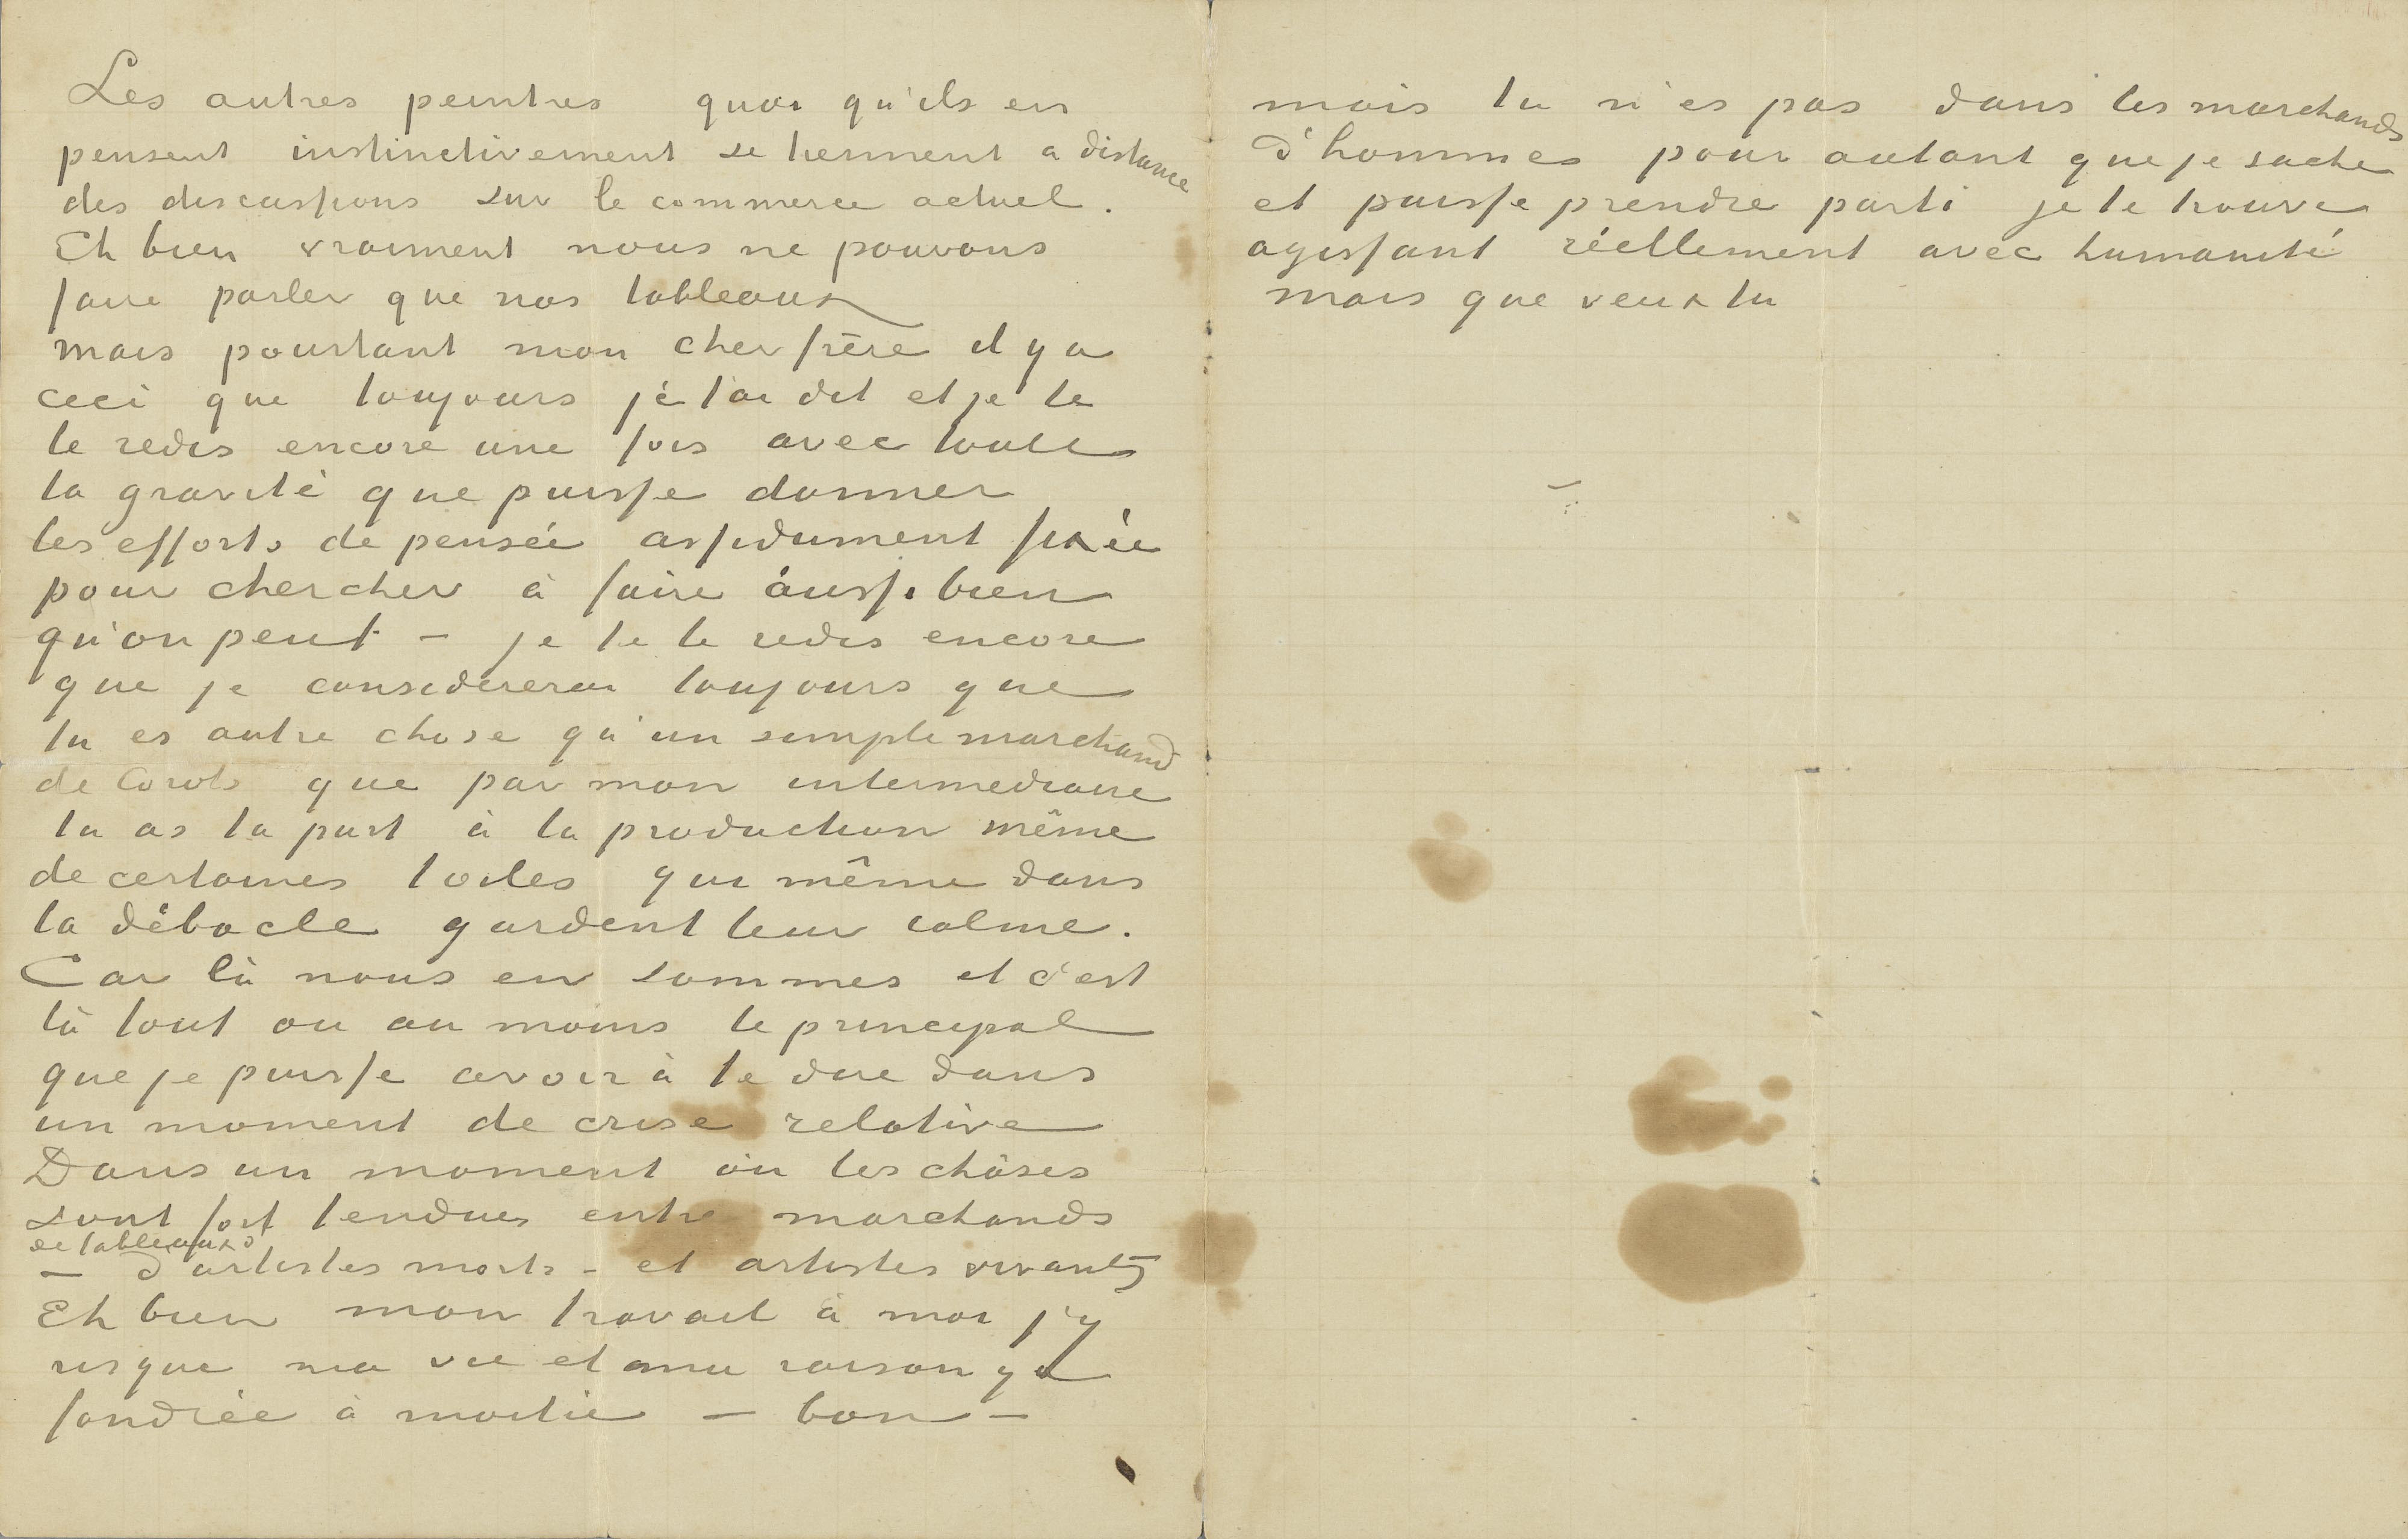 Les autres peintres quoi qu'ils en
pensent instinctivement se tiennent à distance
des discussions sur le commerce actuel.
Eh bien vraiment nous ne pouvons
faire parler que nos tableaux
mais pourtant mon cher frère il y a
ceci que toujours je t'ai dit et je te
le redis encore une fois avec toute
la gravité que puisse donner
les efforts de pensée assidument fixée
pour chercher à faire aussi bien
qu'on peut – je te le redis encore
que je considererai toujours que
tu es autre chose qu'un simple marchand
de Corots que par mon intermediaire
tu as ta part à la production même
de certaines toiles qui même dans
la débacle gardent leur calme.
Car là nous en sommes et c'est
là tout ou au moins le principal
que je puisse avoir à te dire dans
un moment de crise relative
Dans un moment où les choses
sont fort tendues entre marchands
de tableaux
– d'artistes morts – et artistes vivants
Eh bien mon travail à moi j'y
risque ma vie et ma raison y a
fondrée à moitié – bon –
mais tu n'es pas dans les marchands
d'hommes pour autant que je sache
et puisse prendre parti je te trouve
agissant réellement avec humanité
mais que veux tu